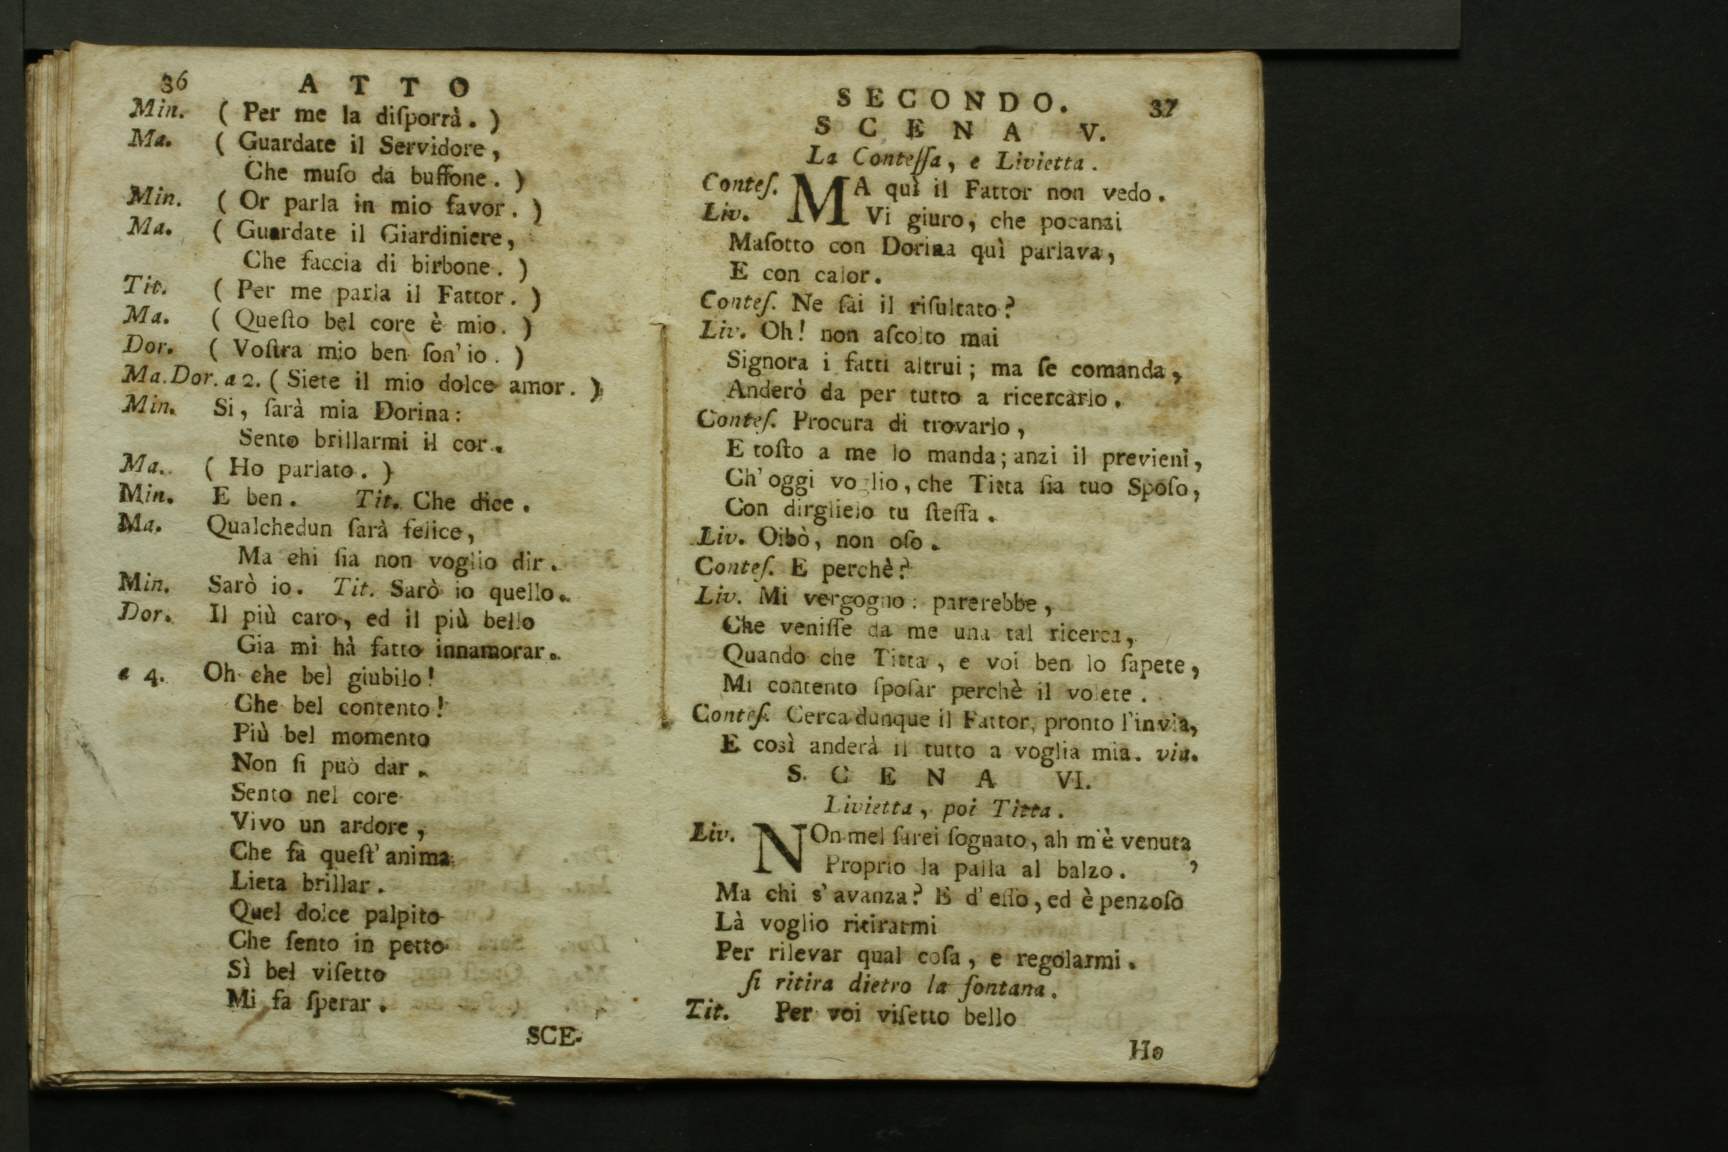 36 ATTO
Min. ( Per me la diſporrà. )
Ma. ( Guardate il Servidore,
Che muſo da buffone. )
Min. ( Or parla in mio favor. )
Ma. ( Guardate il Giardiniere,
Che faccia di birbone. )
Tit. ( Per me parla il Fattor. )
Ma. ( Queſto bel core è mio. )
Dor. ( Voſtra mio ben ſon' io. )
Ma.Dor. a 2. ( Siete il mio dolce amor. )
Min. Si, ſarà mia Dorina:
Sento brillarmi il cor.
Ma. ( Ho parlato. )
Min. E ben. Tit. Che dice.
Ma. Qualchedun ſarà felice,
Ma chi ſia non voglio dir.
Min. Sarò io. Tit. Sarò io quello.
Dor. Il più caro, ed il più bello
Gia mi hà fatto innamorar.
a 4. Oh che bel giubilo!
Che bel contento!
Più bel momento
Non ſi può dar.
Sento nel core
Vivo un ardore,
Che fà queſt' anima
Lieta brillar.
Quel dolce palpito
Che ſento in petto
Sì bel viſetto
Mi fa ſperar.
SCE-
SECONDO. 37
SCENA V.
La Conteſſa, e Livietta.
Conteſ. MA quì il Fattor non vedo.
Liv. Vi giuro, che pocanzi
Maſotto con Dorina quì parlava,
E con calor.
Conteſ. Ne ſai il riſultato?
Liv. Oh! non aſcolto mai
Signora i fatti altrui; ma ſe comanda,
Anderò da per tutto a ricercarlo.
Conteſ. Procura di trovarlo,
E toſto a me lo manda; anzi il previeni,
Ch' oggi voglio, che Titta ſia tuo Spoſo,
Con dirglielo tu ſteſſa.
Liv. Oibò, non oſo.
Conteſ. E perchè?
Liv. Mi vergogno: parerebbe,
Che veniſſe da me una tal ricerca,
Quando che Titta, e voi ben lo ſapete,
Mi contento ſpoſar perchè il volete.
Conteſ. Cerca dunque il Fattor, pronto l'invia,
E così anderà il tutto a voglia mia. via.
SCENA VI.
Livietta, poi Titta.
Liv. NOn mel ſarei ſognato, ah m'è venuta
Proprio la palla al balzo.
Ma chi s' avanza? E d' eſſo, ed è penzoſo
Là voglio ritirarmi
Per rilevar qual coſa, e regolarmi.
ſi ritira dietro la fontana.
Tit. Per voi viſetto bello
Ho